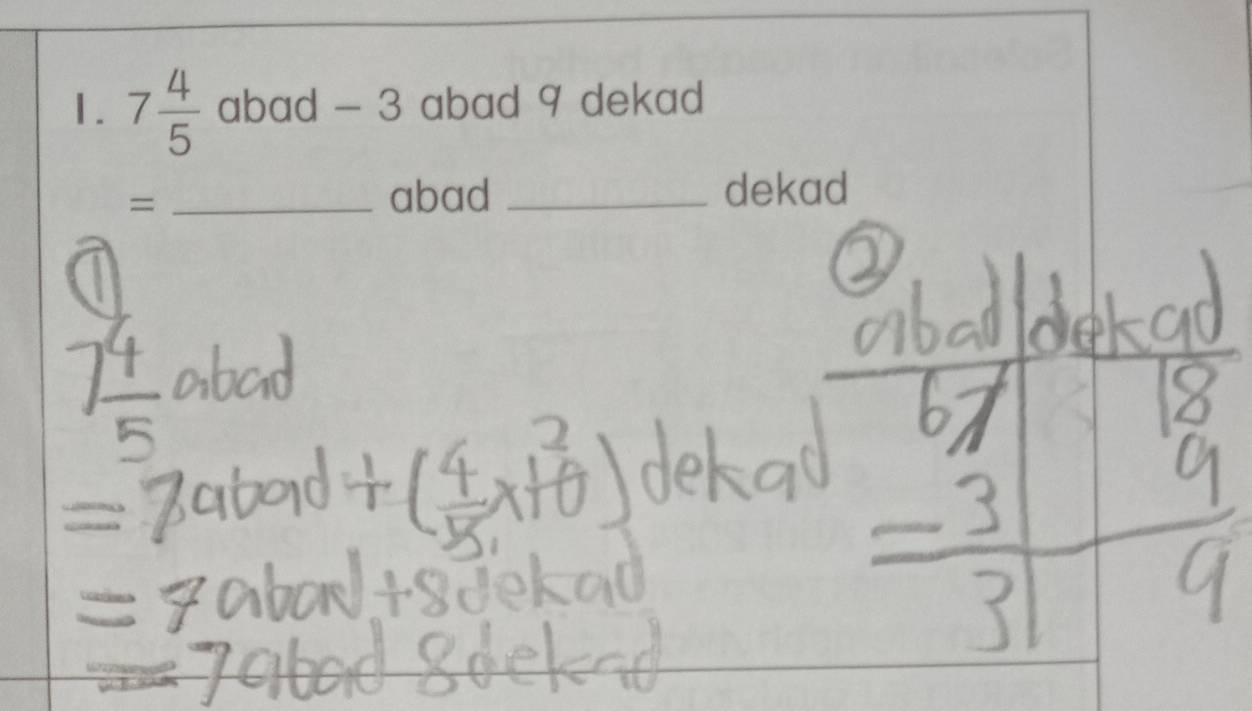 1. 7 4/5 abad – 3 abad 9 dekad
= ________ abad ________ dekad
①
7 4/5 abad
= 7 abad + (4/5 x 10) dekad
2
1
= 7 abad + 8 dekad
= 7 abad 8 dekad
②
abad | dekad
6 7 | 18
– 3 | 9
3 | 9